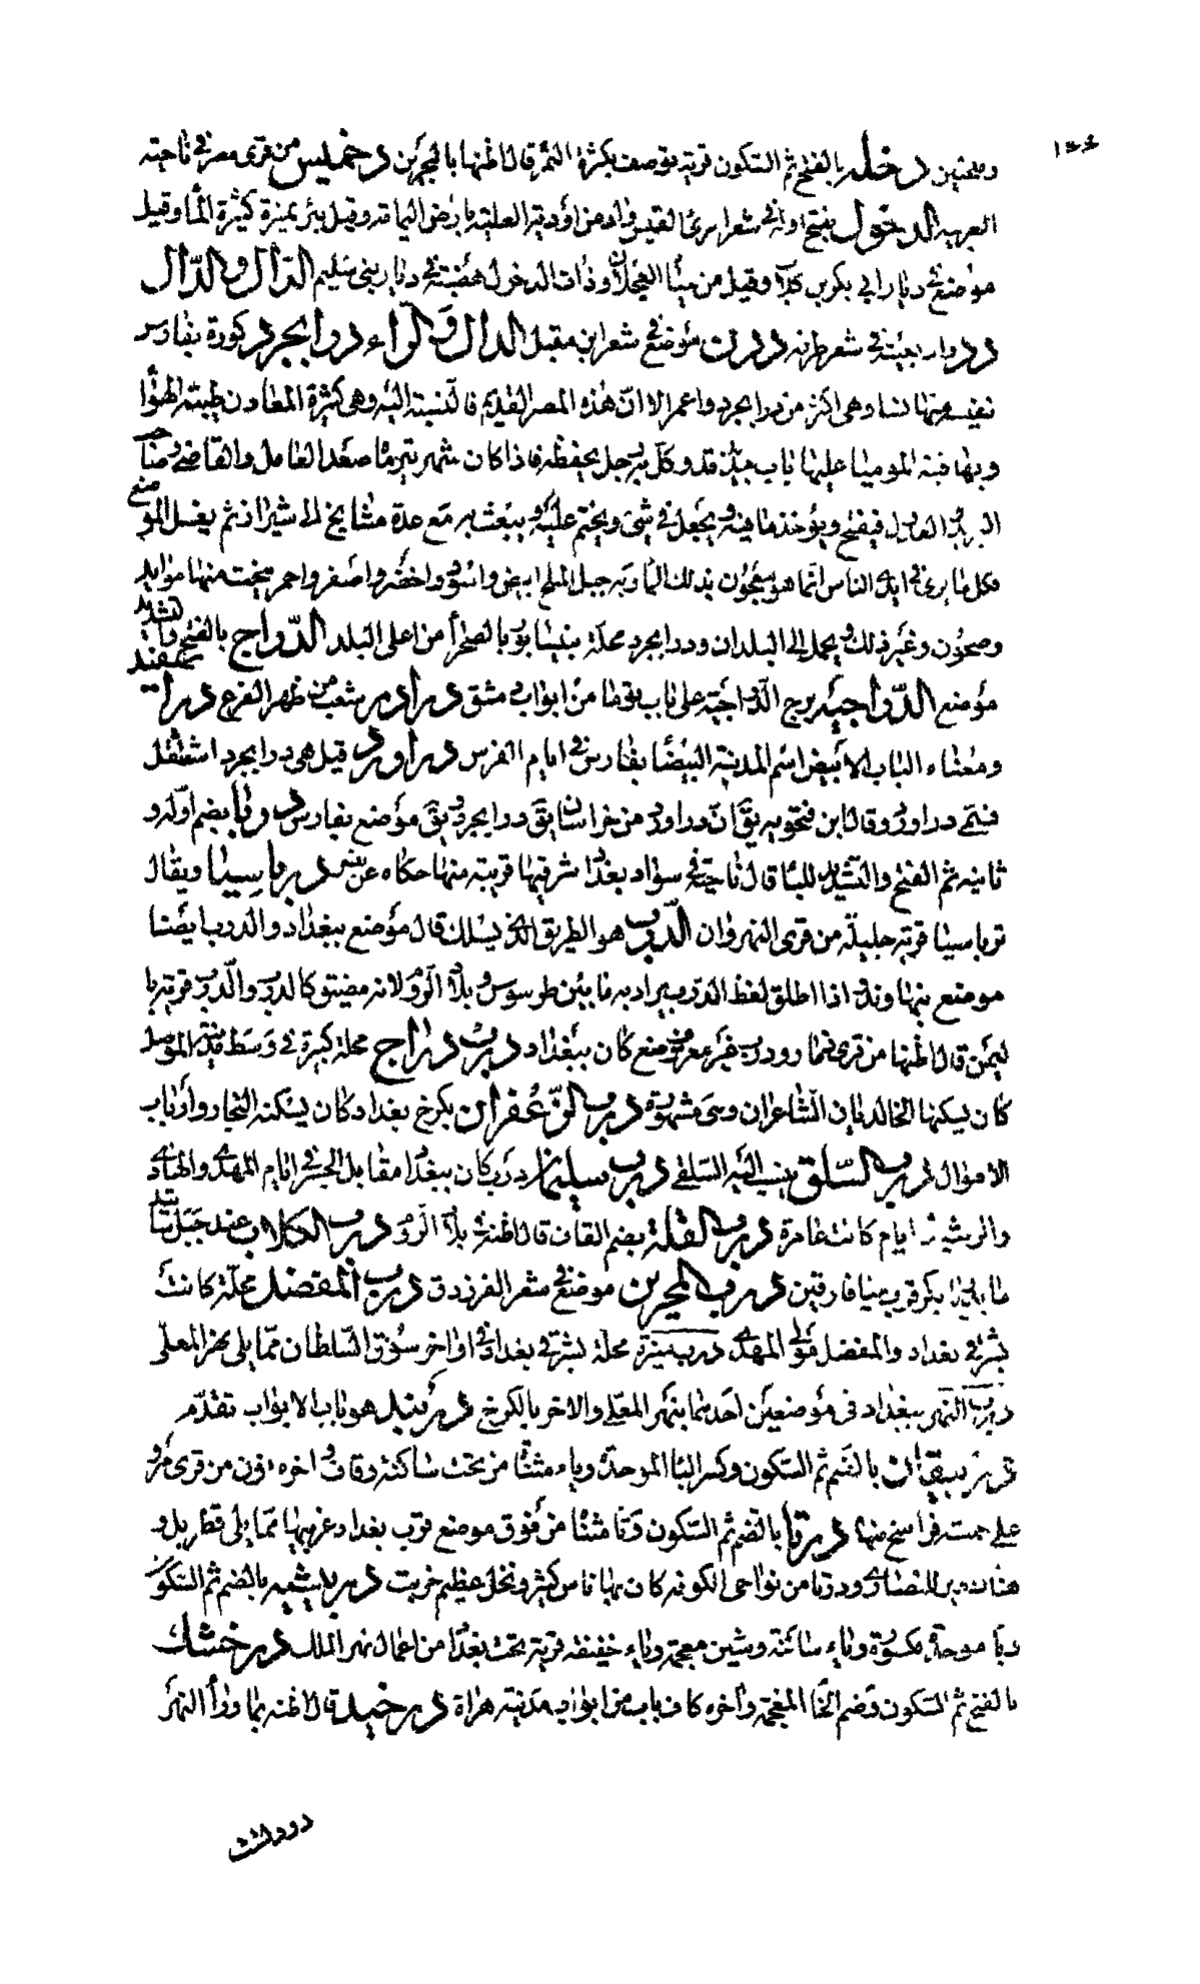 ١٤٤
وطمثين دخله بالفتح ثم السكون قرية يوصف بكثرة التمر قال اظنها بالبحرين دخميس من قرى مصر في ناحية
الغربيه الدخول بفتح اوله في شعر امرئ القيس واد من اودية العلية بارض اليمامة وقيل بئر نميرة كثيرة الماء وقيل
موضع في ديار ابي بكر بن كلاب وقيل من مياه العجلان وذات الدخول هضبة في ديار بني سليم الدال والدال
ددوار بعينه في شعر ددن موضع في شعر ابن مقبل الدال والراء درابجرد كورة بفارس
نفيسة منها فسا وهي اكثر من درابجرد واعمر الا ان هذه المصر القديم فالنسبة اليه وهي كثيرة المعادن طيبة الهواء
وبها قبة الموميا عليها باب حديد قد وكل به رجل يحفظه فاذا كان شهر تيرماه صعد العامل والقاضي وصاحب
البريد والعدول فيفتح ويؤخذ ما فيه ويجعل في شئ ويختم عليه ويبعث به مع عدة مشايخ الى شيراز ثم يغسل الموضع
فكل ما يرى في ايدي الناس انما هو معجون بذلك الماء وبه جبل الملح ابيض واسود واخضر واصفر واحمر ينحت منها موائد
وصحون وغير ذلك ويحمل الى البلدان ودرابجرد محلة بنيسابور بالصحراء من اعلى البلد الدراج بالفتح والتشديد
موضع الدراجيه برج الدراجية على باب توما من ابواب دمشق درادر شعب من ظهر الفرع درا سفيد
ومعناه الباب الابيض اسم المدينة البيضاء بفارس في ايام الفرس دراورد قيل هي درابجرد استثقل
فسمى دراورد وقال ابن فتحويه يق ان دراورد من خراسان يق درابجرد ويق موضع بفارس دربا بضم اوله و
ثانيه ثم الفتح والتشديد للباء قال ناحية في سواد بغداد شرقيها قريبة منها حكاه عن نصر درباسيا ويقال
ترباسيا قرية جليلة من قرى النهروان الدرب هو الطريق الذي يسلك قال موضع ببغداد والدرب ايضا
موضع بنهاوند اذا اطلق لفظ الدرب يراد به ما بين طرسوس وبلاد الروم لانه مضيق كالدرب والدرب قرية با
ليمن قال اظنها من قرى ذمار ودرب غير معروف موضع كان ببغداد درب دراج محلة كبيرة في وسط مدينة الموصل
كان يسكنها الخالديان الشاعران وهي مشهورة درب الزعفران بكرخ بغداد كان يسكنه التجار وارباب
الاموال درب السلق ينسب اليه السلقي درب سليمان درب كان ببغداد مقابل الجسر في ايام المهدي والهادي
والرشيد ايام كانت عامرة درب القلة بضم القاف قال اظنه بلاد الروم درب الكلاب عند جبل باتلد
ما بديار بكر قرب ميافارقين درب المجيزين موضع في شعر الفرزدق درب المفضل محلة كانت
بشرقي بغداد والمفضل مولى المهدي درب منيرة محلة بشرقي بغداد في اواخر سوق السلطان مما يلي نهر المعلى
درب النهر ببغداد في موضعين احدهما بنهر المعلى والاخر بالكرخ دربند هو باب الابواب تقدم
دربيقان بالفتح ثم السكون وكسر الباء الموحدة وياء مثناة من تحت ساكنة وقاف واخره نون من قرى مرو
على خمسة فراسخ منها درتا بالضم ثم السكون وتا مثناة من فوق موضع قرب بغداد غربيها مما يلي قطربل و
هناك دير للنصارى ودرتا من نواحي الكوفه كان بها ناس كثير ونخل عظيم خربت دربيشيه بالضم ثم السكون
وبا موحدة مكسورة وياء ساكنة وشين معجمة وياء خفيفة قرية تحت بغداد من اعمال نهر الملك درخشك
بالفتح ثم السكون وضم الخاء المعجمة واخره كاف باب من ابواب مدينة هراة درخيد قال اظنه بما وراء النهر
دوداشت